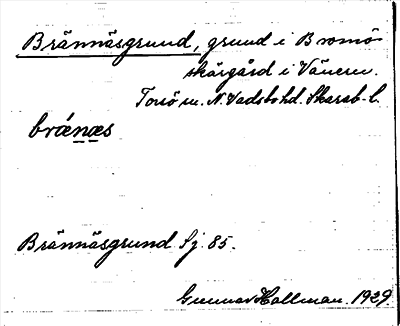 Brännäsgrund, grund i Bromö
skärgård i Vänern.
Torsö sn. N. Vadsbo hd. Skarab. l.
brǽnæs
Brännäsgrund Sj. 85.
Gunnar Hallman. 1929